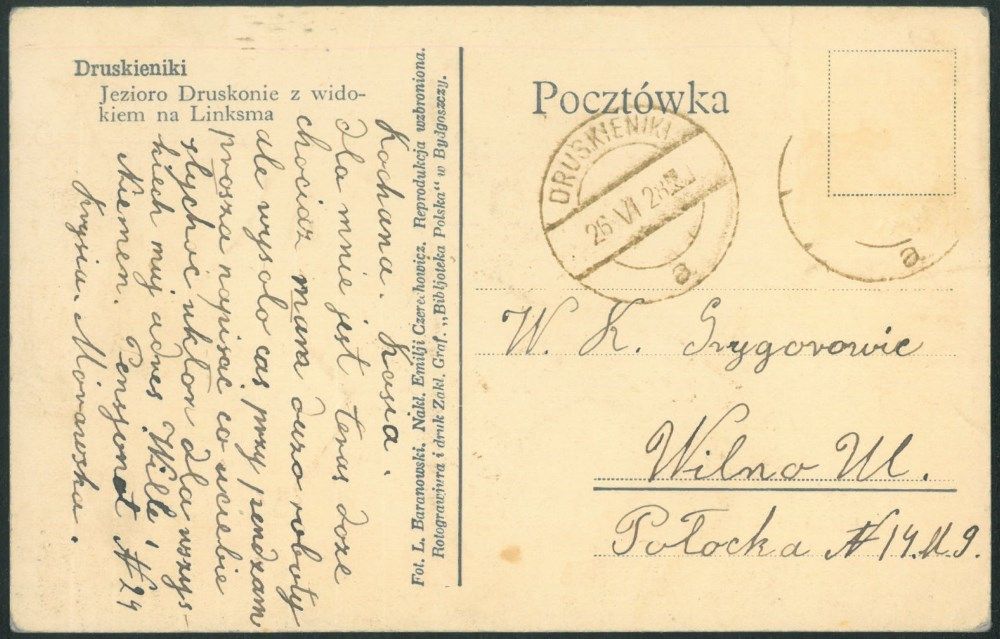 Druskieniki
Jezioro Druskonie z wido-
kiem na Linksma
Kochana. Kasia.
Dla mnie jest teras doże
chociaż mana dużo roboty
ale wysolo cas przy pendzam
prosza napisać co uciebie
słychoc ukłon dla wszys-
kiech muj adres Willa,
Niemen. Pensjonat № 24
Krysia. Morawska.
Fot. L. Baranowski. Nakl. Emilji Czerechowicz. Reprodukcja wzbroniona.
Rotograwjura i druk Zakl. Graf. „Bibljoteka Polska" w Bydgoszczy.
Pocztówka
DRUSKIENIKI
26 VI 28
a
a
W. K. Grygorowic
Wilno Ul.
Połocka № 14. M 9.